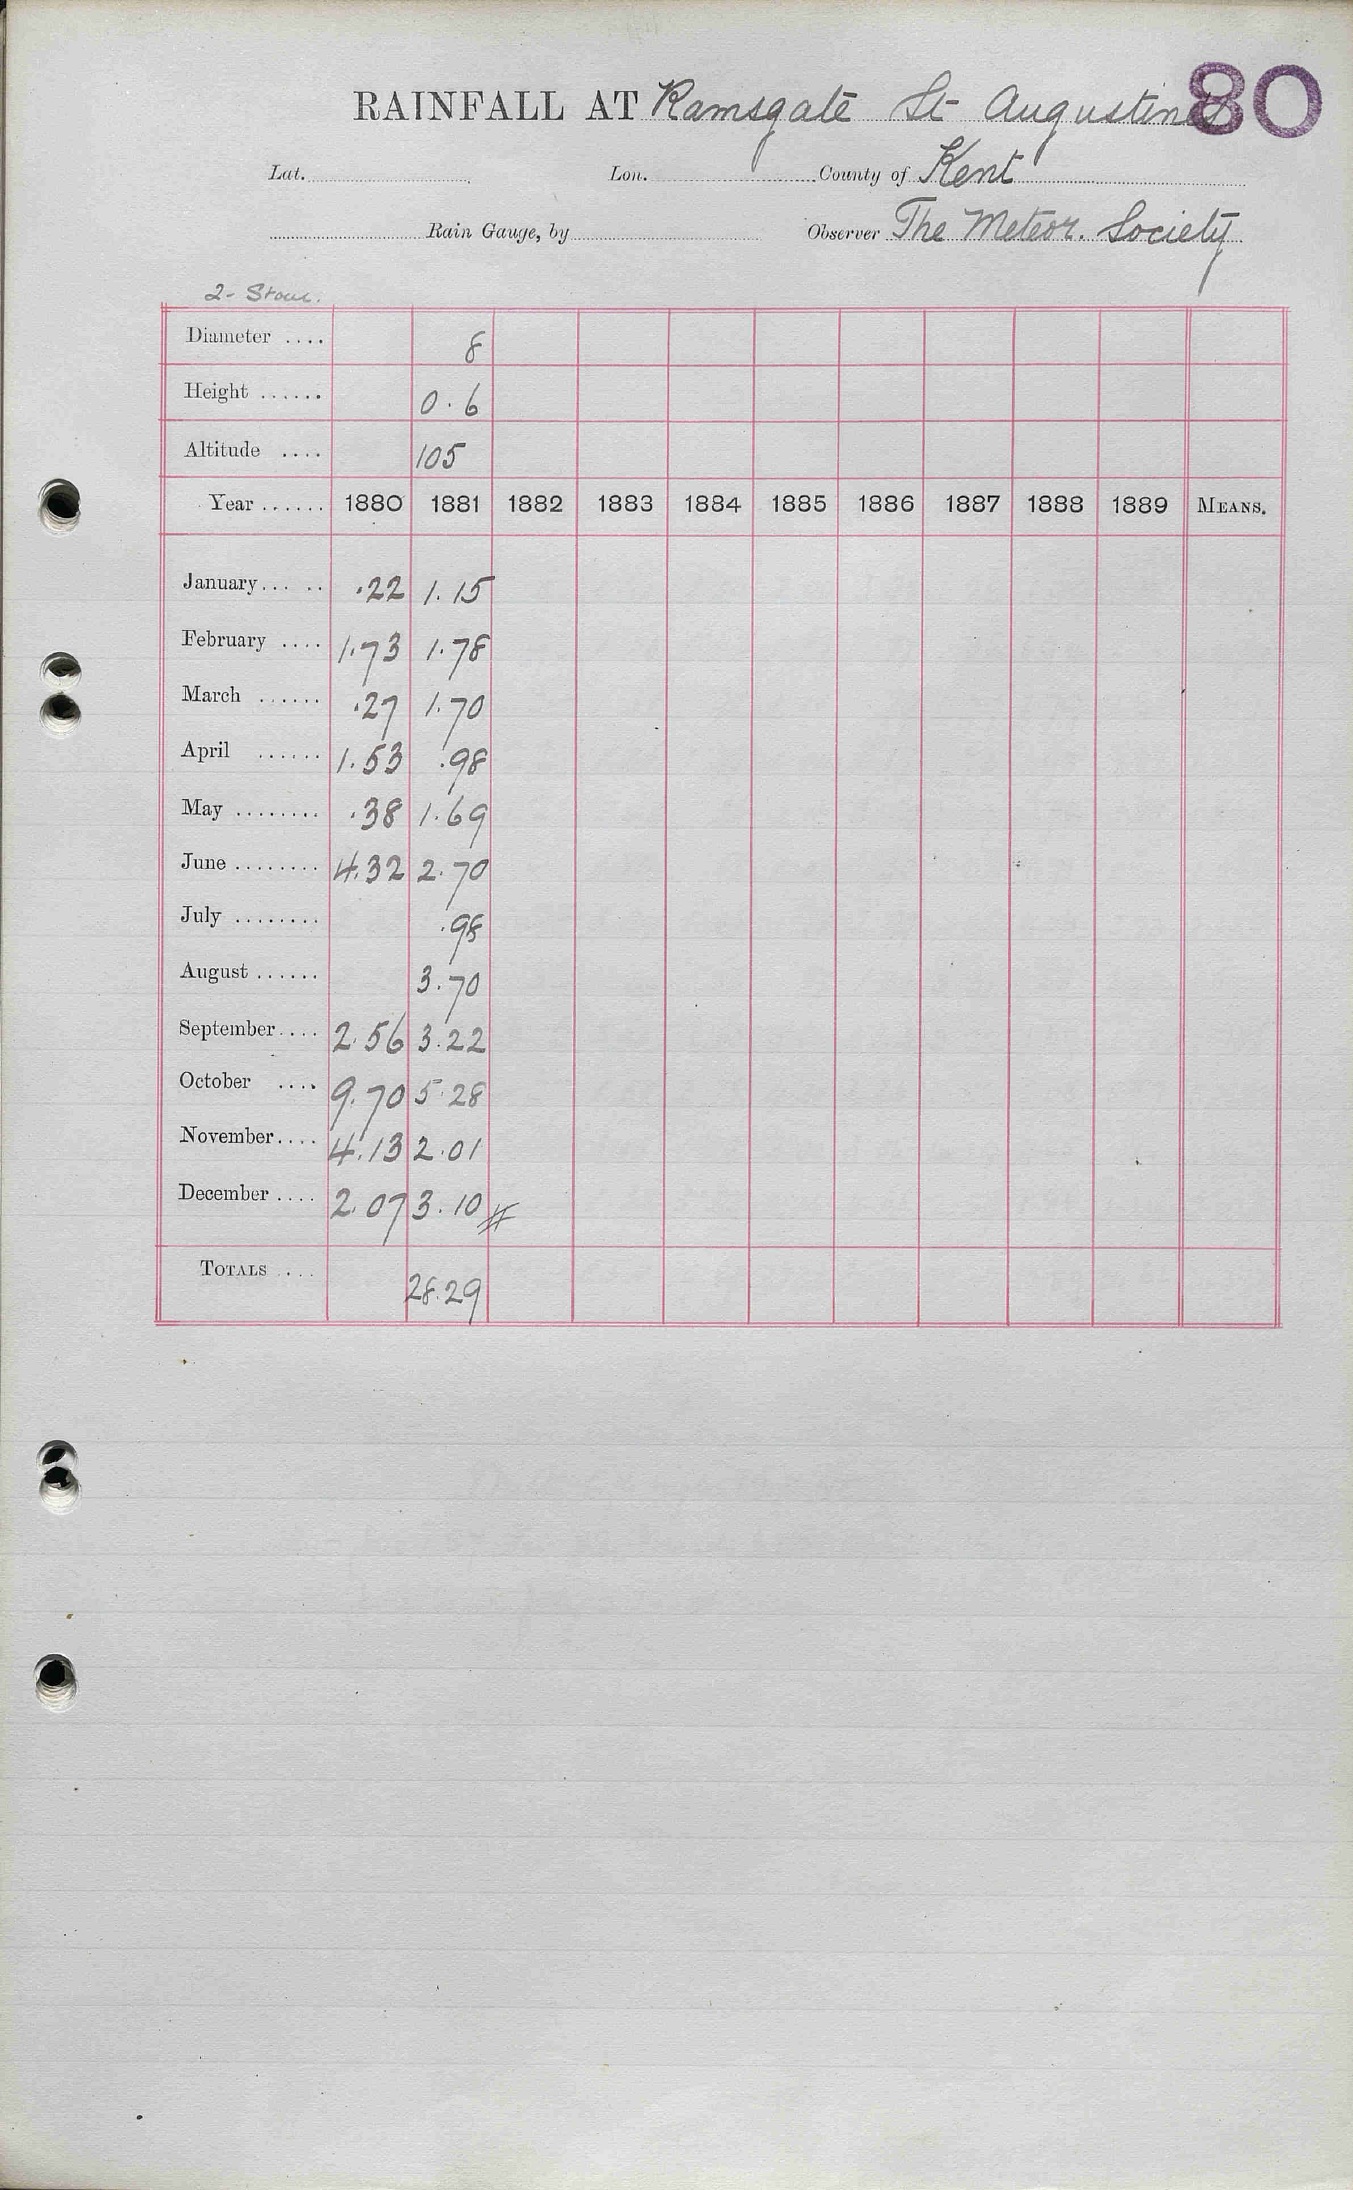 80
RAINFALL AT Ramsgate St Augustines
Lat. Lon. County of Kent
Rain Gauge, by Observer The Meteor. Society
2- Stour.
Diameter .... 8
Height ...... 0.6
Altitude .... 105
Year ...... 1880 1881 1882 1883 1884 1885 1886 1887 1888 1889 MEANS.
January... .. .22 1.15
February .... 1.73 1.78
March ...... .27 1.70
April ...... 1.53 .98
May ........ .38 1.69
June ........ 4.32 2.70
July ........ .98
August ...... 3.70
September.... 2.56 3.22
October .... 9.70 5.28
November.... 4.13 2.01
December .... 2.07 3.10 #
TOTALS .... 28.29